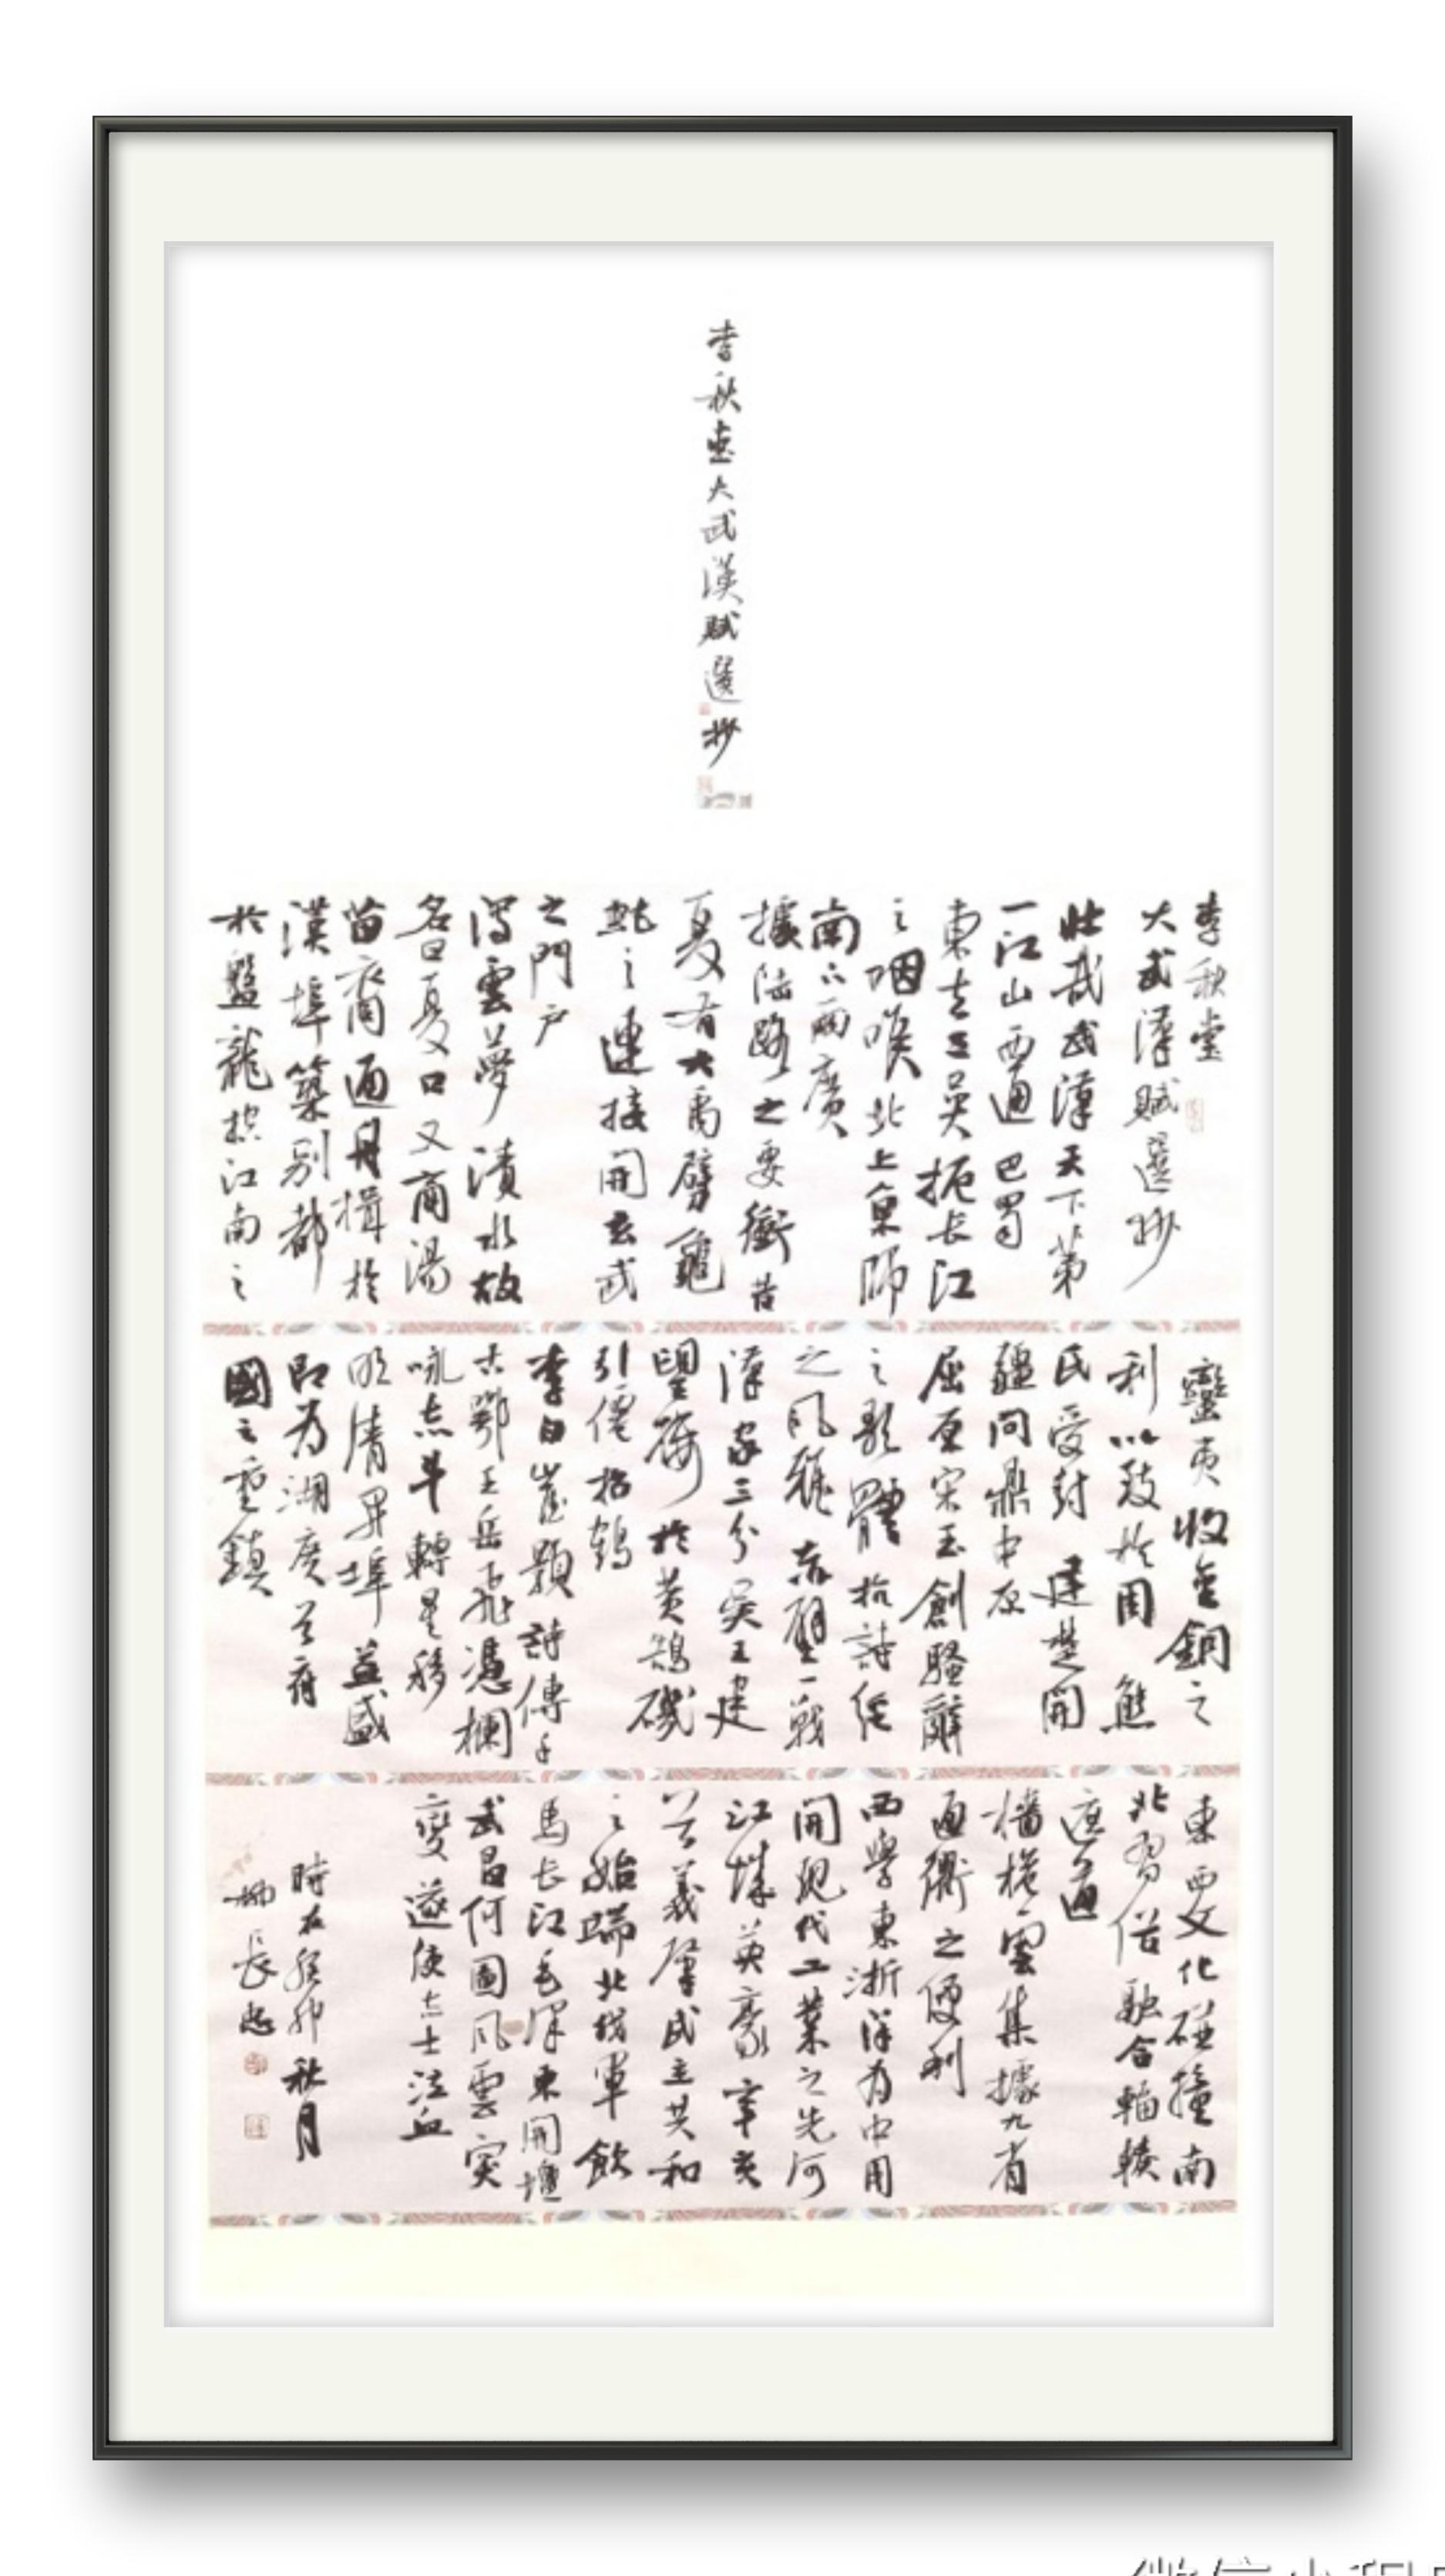 李秋堂大武漢賦選抄
李秋堂
大武漢賦選抄
壯哉武漢天下第
一江山西通巴蜀
東去三吴扼长江
之咽喉北上京師
南下兩廣
據陆路之要衝昔
夏有大禹劈龜
蛇之連接開玄武
之門户
瀉雲夢漬水故
名曰夏口又商湯
苗裔通舟楫於
漢埠築别都
於盤龍控江南之
蠻夷收金銅之
利以致於周熊
氏受封建楚開
疆問鼎中原
屈原宋玉創騷辭
之歌體抗詩經
之風雅赤壁一戰
漢家三分吴王建
於黄鵠磯
引僊招鶴
李白崔顥詩傳千
古鄂王岳飛憑欄
咏志斗轉星移
明清昇埠益盛
即为湖廣首府
國之重鎮
東西文化碰撞南
北習俗融合輻輳
遮道
檣横雲集據九省
通衢之便利
西學東渐洋为中用
開現代工業之先河
江城英豪辛亥
首義肇民主共和
之始端北伐軍飲
馬长江毛泽東開壇
武昌何圖風雲突
變遂使志士泣血
時在癸卯秋月
長忠
微信小程序